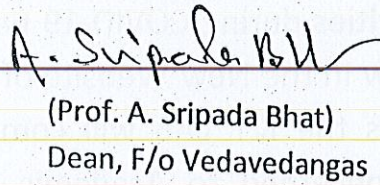 A. Sripada Bh
(Prof. A. Sripada Bhat)
Dean, F/o Vedavedangas